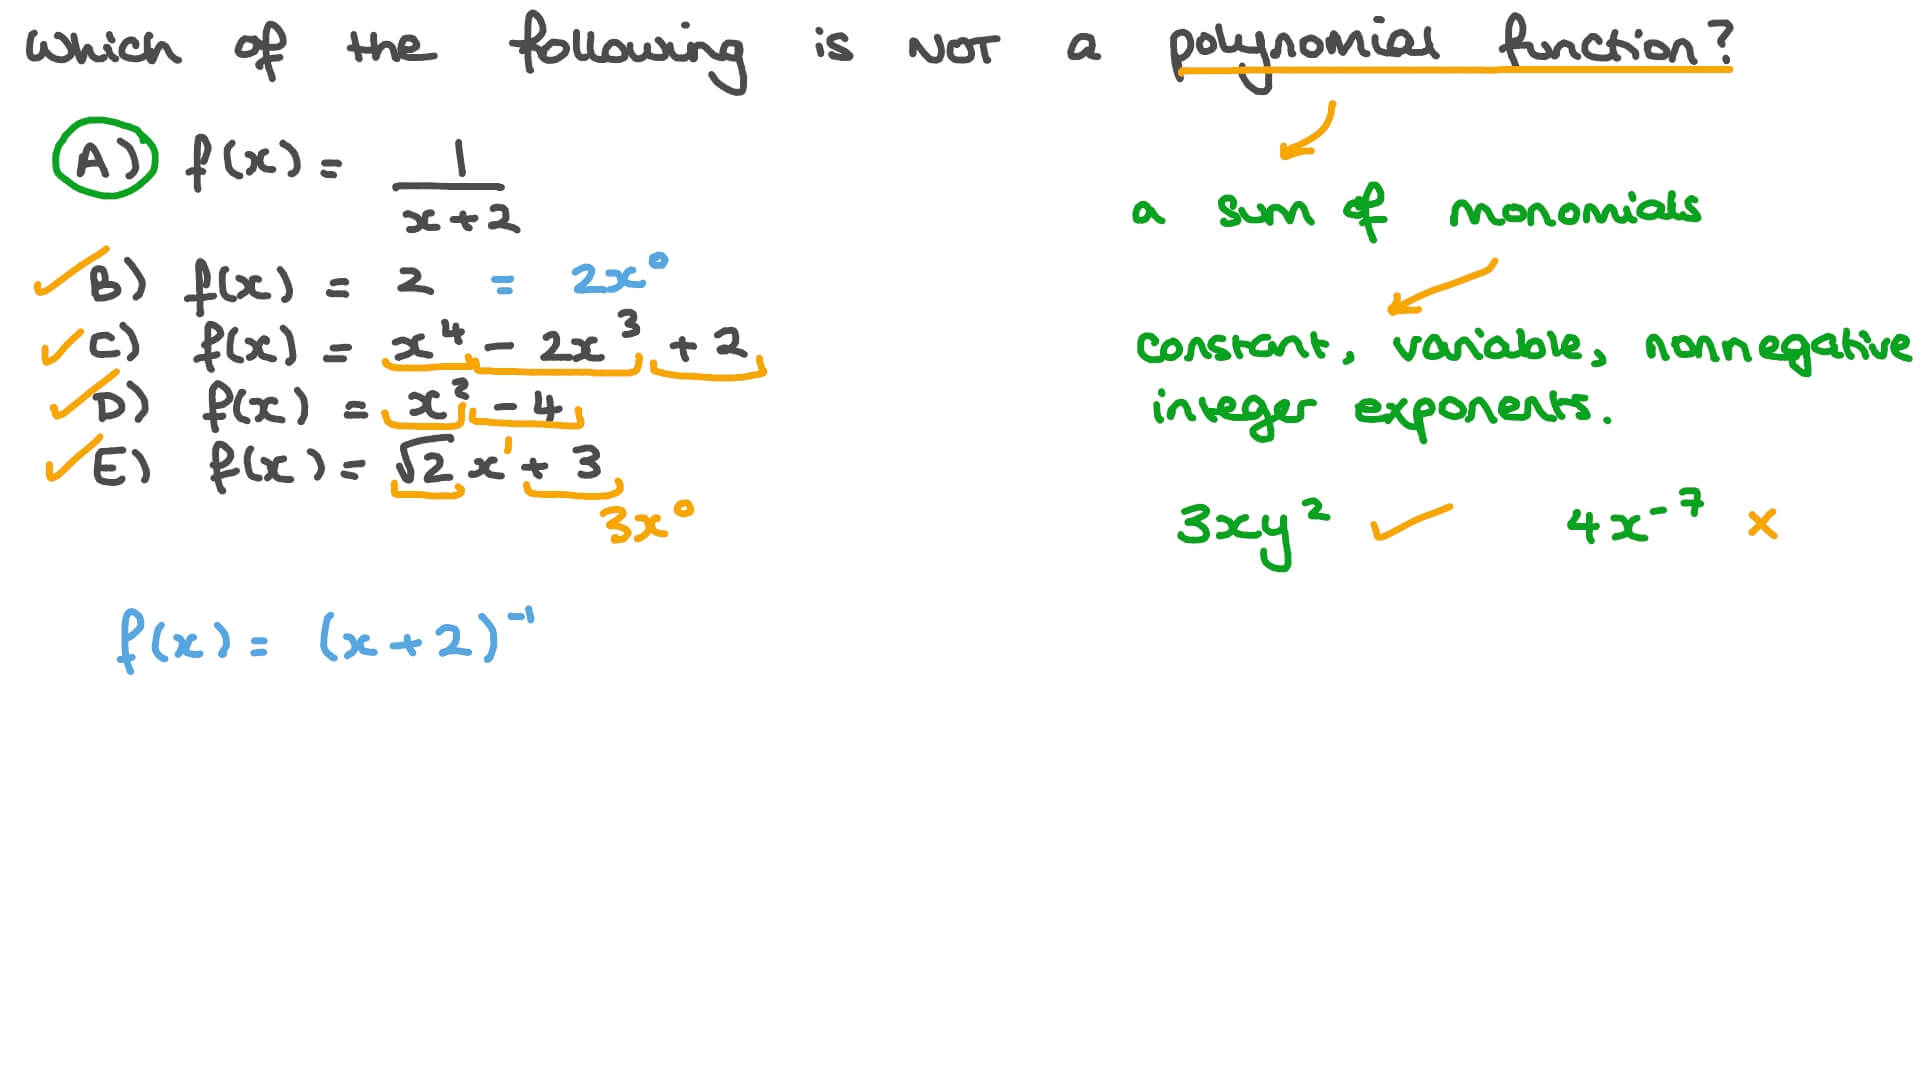 which of the following is NOT a polynomial function?
A) f(x) = 1/(x+2)
B) f(x) = 2 = 2x⁰
C) f(x) = x⁴ - 2x³ + 2
D) f(x) = x² - 4
E) f(x) = √2 x¹ + 3
3x⁰
f(x) = (x+2)⁻¹
a sum of monomials
constant, variable, nonnegative
integer exponents.
3xy² ✓ 4x⁻⁷ ×